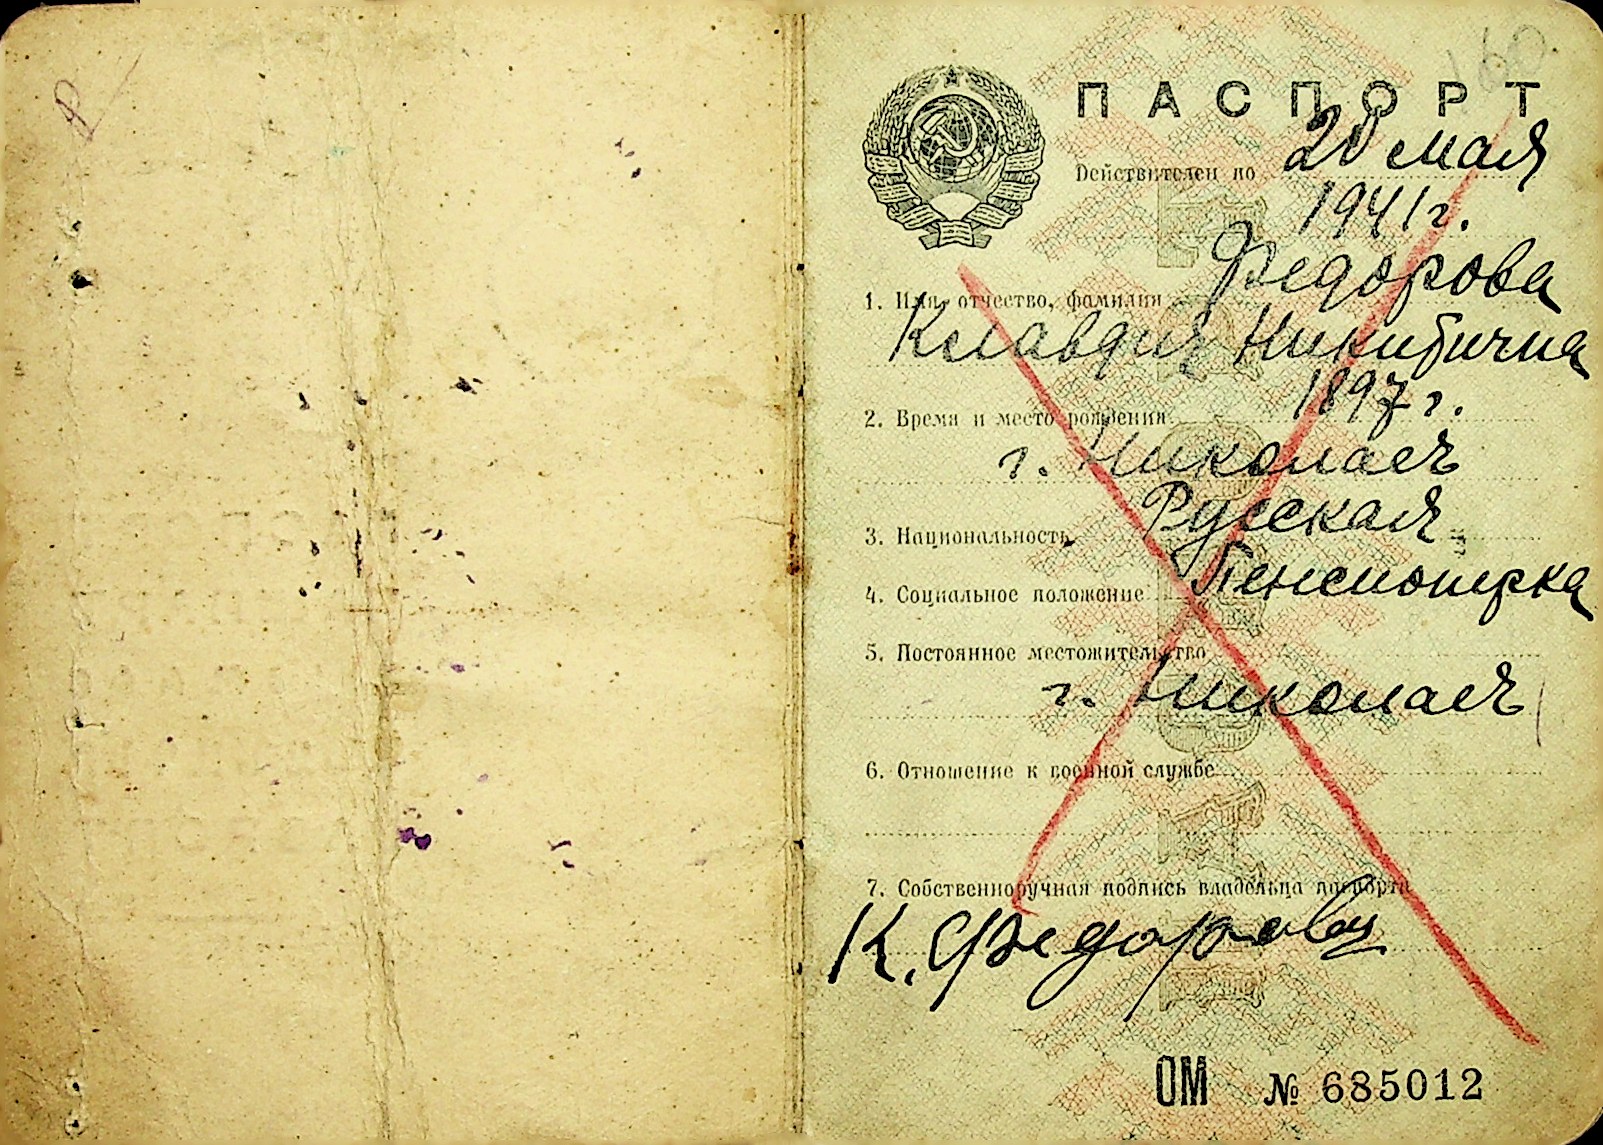 160
ПАСПОРТ
Действителен по 20 мая
1941 г.
1. Имя, отчество, фамилия Федорова
Клавдия Никитична
2. Время и место рождения 1897 г.
г. Николаев
3. Национальность Русская
4. Социальное положение Пенсионерка
5. Постоянное местожительство
г. Николаев
6. Отношение к военной службе
7. Собственноручная подпись владельца паспорта
К. Федорова
ОМ № 685012